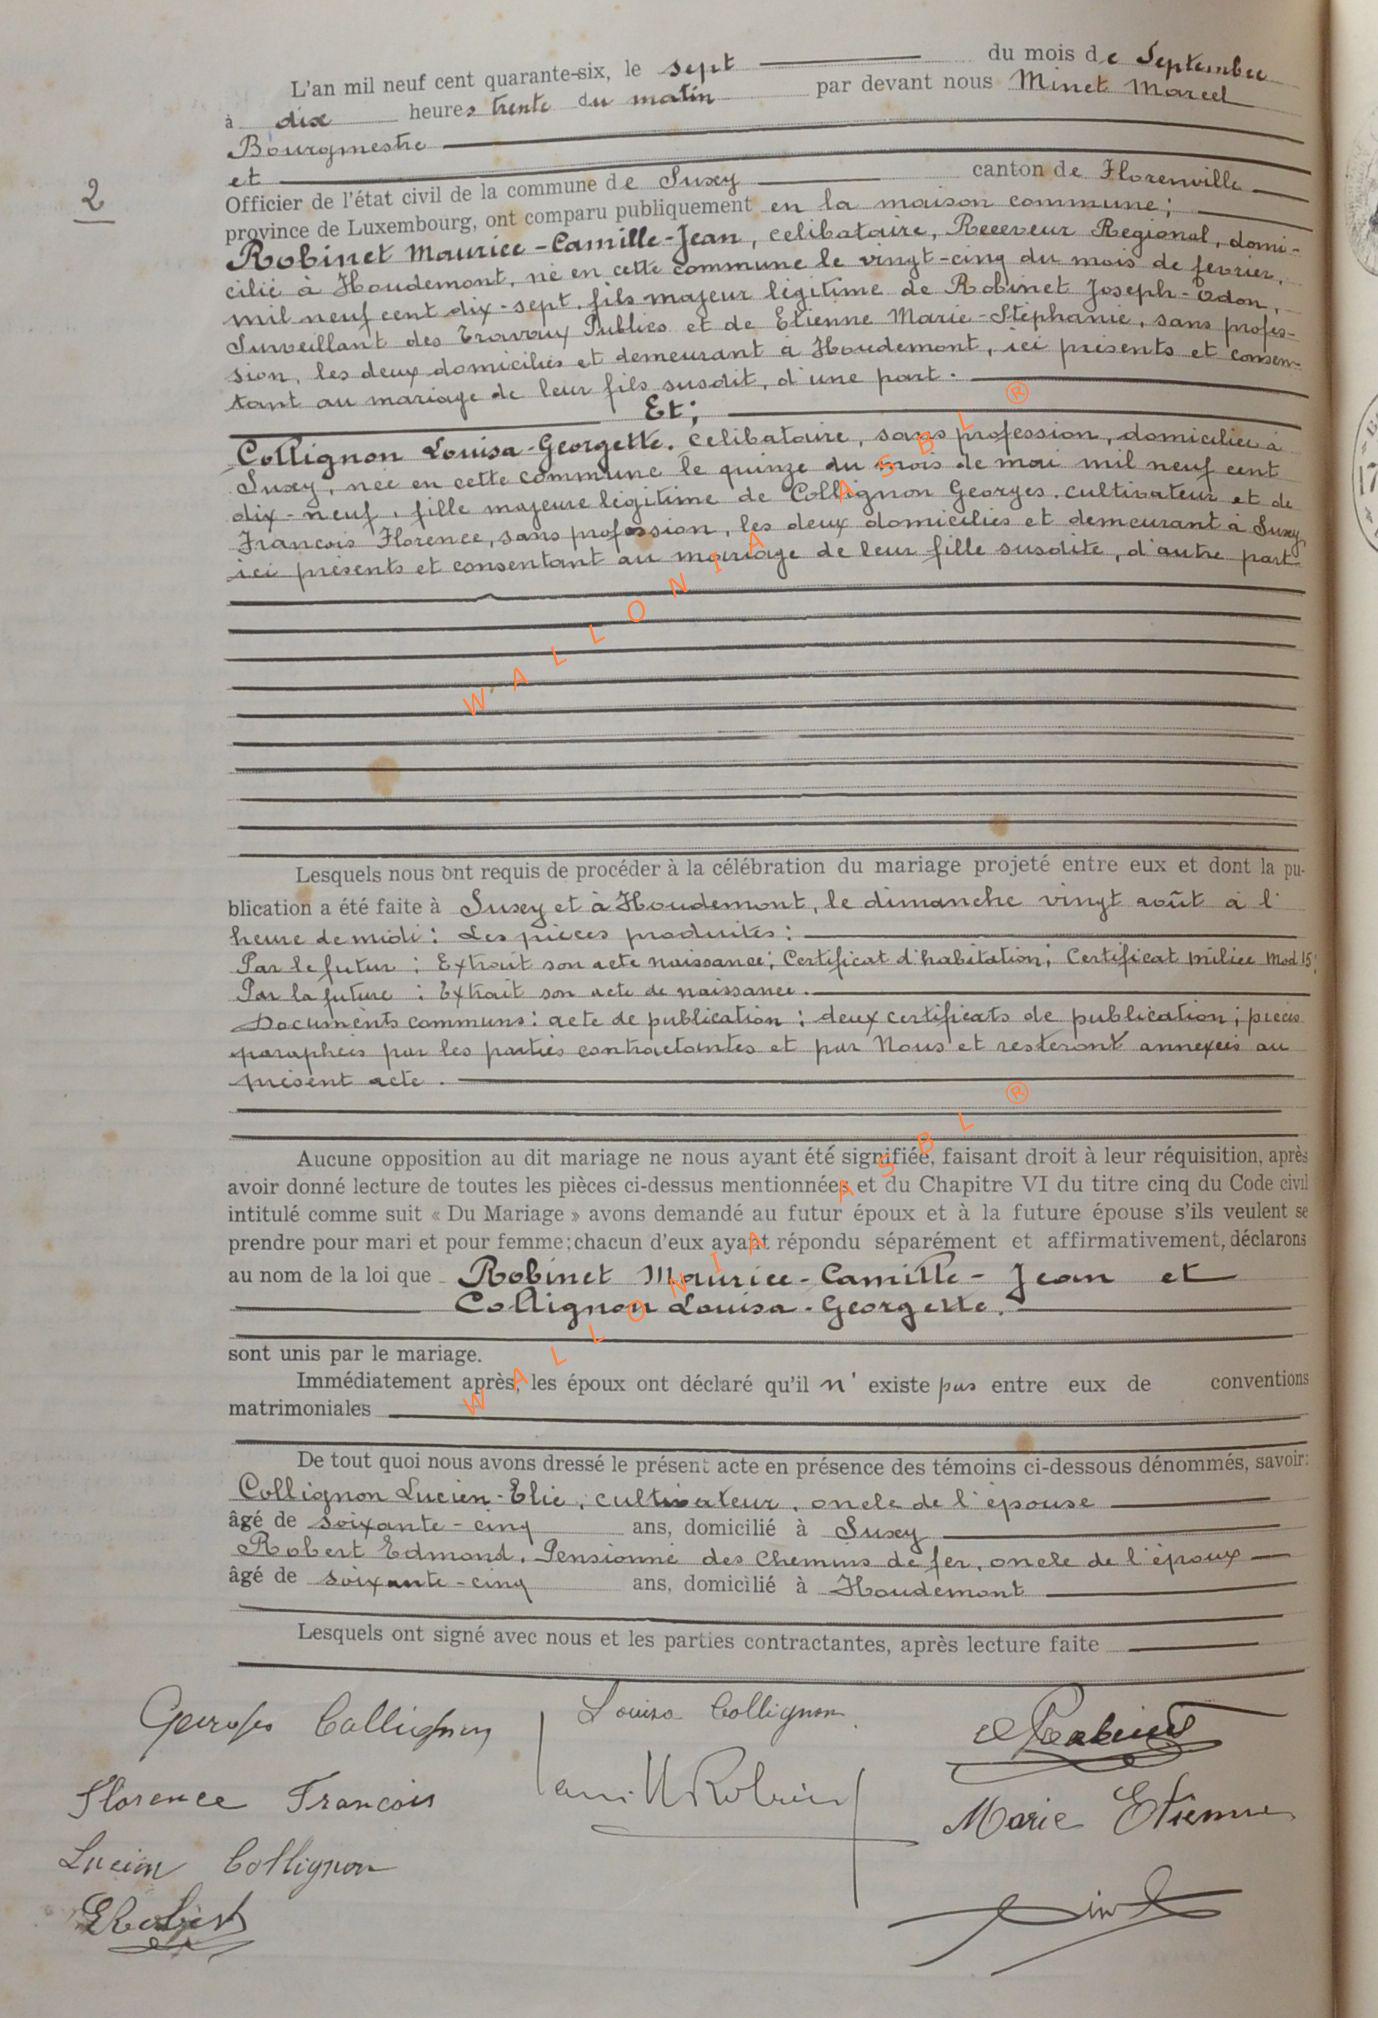 L'an mil neuf cent quarante-six, le sept du mois de Septembre
à dix heures trente du matin par devant nous Minet Marcel
Bourgmestre
et
2
Officier de l'état civil de la commune de Suxy canton de Florenville
province de Luxembourg, ont comparu publiquement en la maison commune;
Robinet Maurice-Camille-Jean, célibataire, Receveur Régional, domi-
cilié à Houdemont, né en cette commune le vingt-cinq du mois de février,
mil neuf cent dix-sept, fils majeur légitime de Robinet Joseph-Odon,
Surveillant des Travaux Publics et de Etienne Marie-Stéphanie, sans profes-
sion, les deux domiciliés et demeurant à Houdemont, ici présents et consen-
tant au mariage de leur fils susdit, d'une part.
Et;
Collignon Louisa-Georgette, célibataire, sans profession, domiciliée à
Suxy, née en cette commune le quinze du mois de mai mil neuf cent
dix-neuf, fille majeure légitime de Collignon Georges, cultivateur et de
François Florence, sans profession, les deux domiciliés et demeurant à Suxy,
ici présents et consentant au mariage de leur fille susdite, d'autre part.
WALLONIA ASBL ®
Lesquels nous ont requis de procéder à la célébration du mariage projeté entre eux et dont la pu-
blication a été faite à Suxy et à Houdemont, le dimanche vingt août à l'
heure de midi: Les pièces produites:
Par le futur : Extrait son acte naissance; Certificat d'habitation; Certificat milice Mod 15;
Par la future : Extrait son acte de naissance.
Documents communs: acte de publication; deux certificats de publication; pièces
paraphées par les parties contractantes et par Nous et resteront annexées au
présent acte.
Aucune opposition au dit mariage ne nous ayant été signifiée, faisant droit à leur réquisition, après
avoir donné lecture de toutes les pièces ci-dessus mentionnées et du Chapitre VI du titre cinq du Code civil
intitulé comme suit « Du Mariage » avons demandé au futur époux et à la future épouse s'ils veulent se
prendre pour mari et pour femme; chacun d'eux ayant répondu séparément et affirmativement, déclarons
au nom de la loi que Robinet Maurice-Camille-Jean et
Collignon Louisa-Georgette.
sont unis par le mariage.
WALLONIA ASBL ®
Immédiatement après, les époux ont déclaré qu'il n'existe pas entre eux de conventions
matrimoniales
De tout quoi nous avons dressé le présent acte en présence des témoins ci-dessous dénommés, savoir:
Collignon Lucien-Elie, cultivateur, oncle de l'épouse
âgé de soixante-cinq ans, domicilié à Suxy
Robert Edmond, Pensionné des Chemins de fer, oncle de l'époux
âgé de soixante-cinq ans, domicilié à Houdemont
Lesquels ont signé avec nous et les parties contractantes, après lecture faite
Georges Collignon Louisa Collignon Robinet
Florence François Camille Robinet Marie Etienne
Lucien Collignon
E Robert Minet